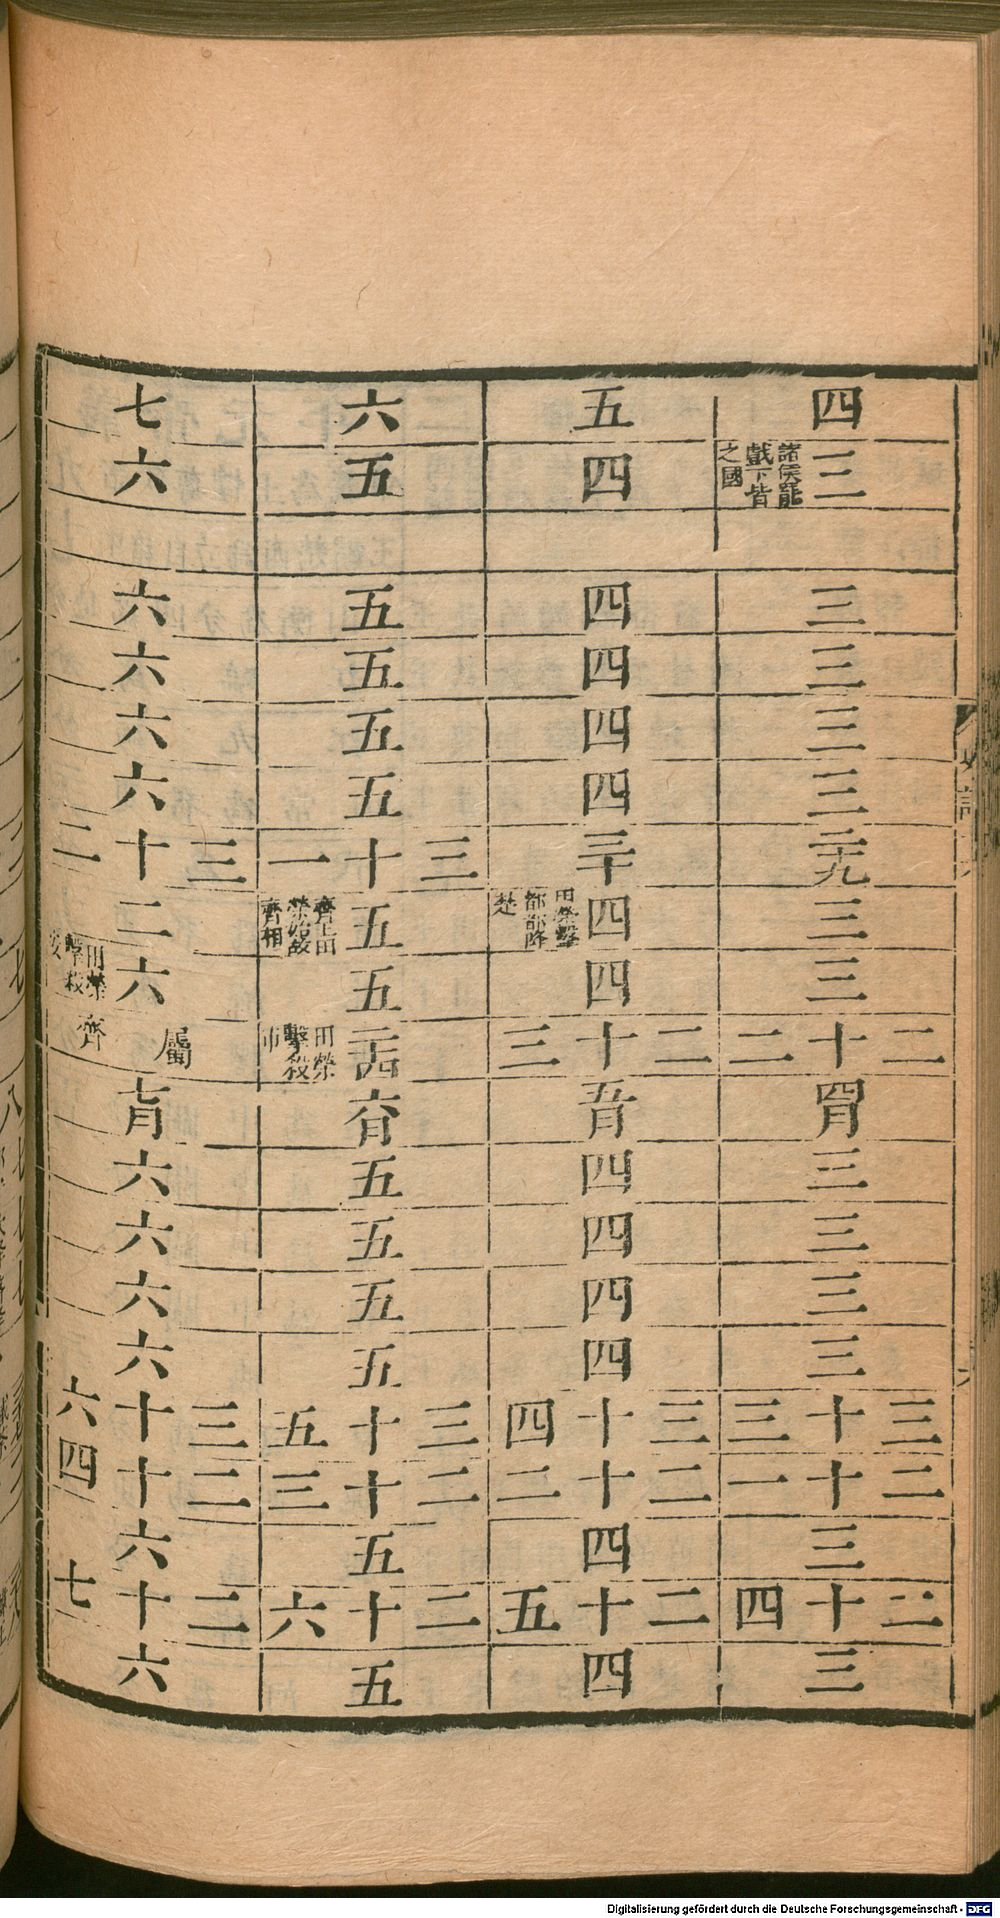 四
三 諸侯罷戲下皆之國
三
三
三
三
二十九
三
三
二十二
四月
三
三
三
三
三十三
二十一
三
二十四
三
五
四
四
四
四
四
三十
四 田榮擊都都降楚
四
二十三
五月
四
四
四
四
三十四
二十二
四
二十五
四
六
五
五
五
五
五
三十一
五 齊王田榮始故齊相
五
二十四 田榮擊殺市
六月
五
五
五
五
三十五
二十三
五
二十六
五
七
六
六
六
六
六
三十二
二
六 田榮擊殺安
屬齊
七月
六
六
六
六
三十六
二十四
六
二十七
六
Digitalisierung gefördert durch die Deutsche Forschungsgemeinschaft - DFG